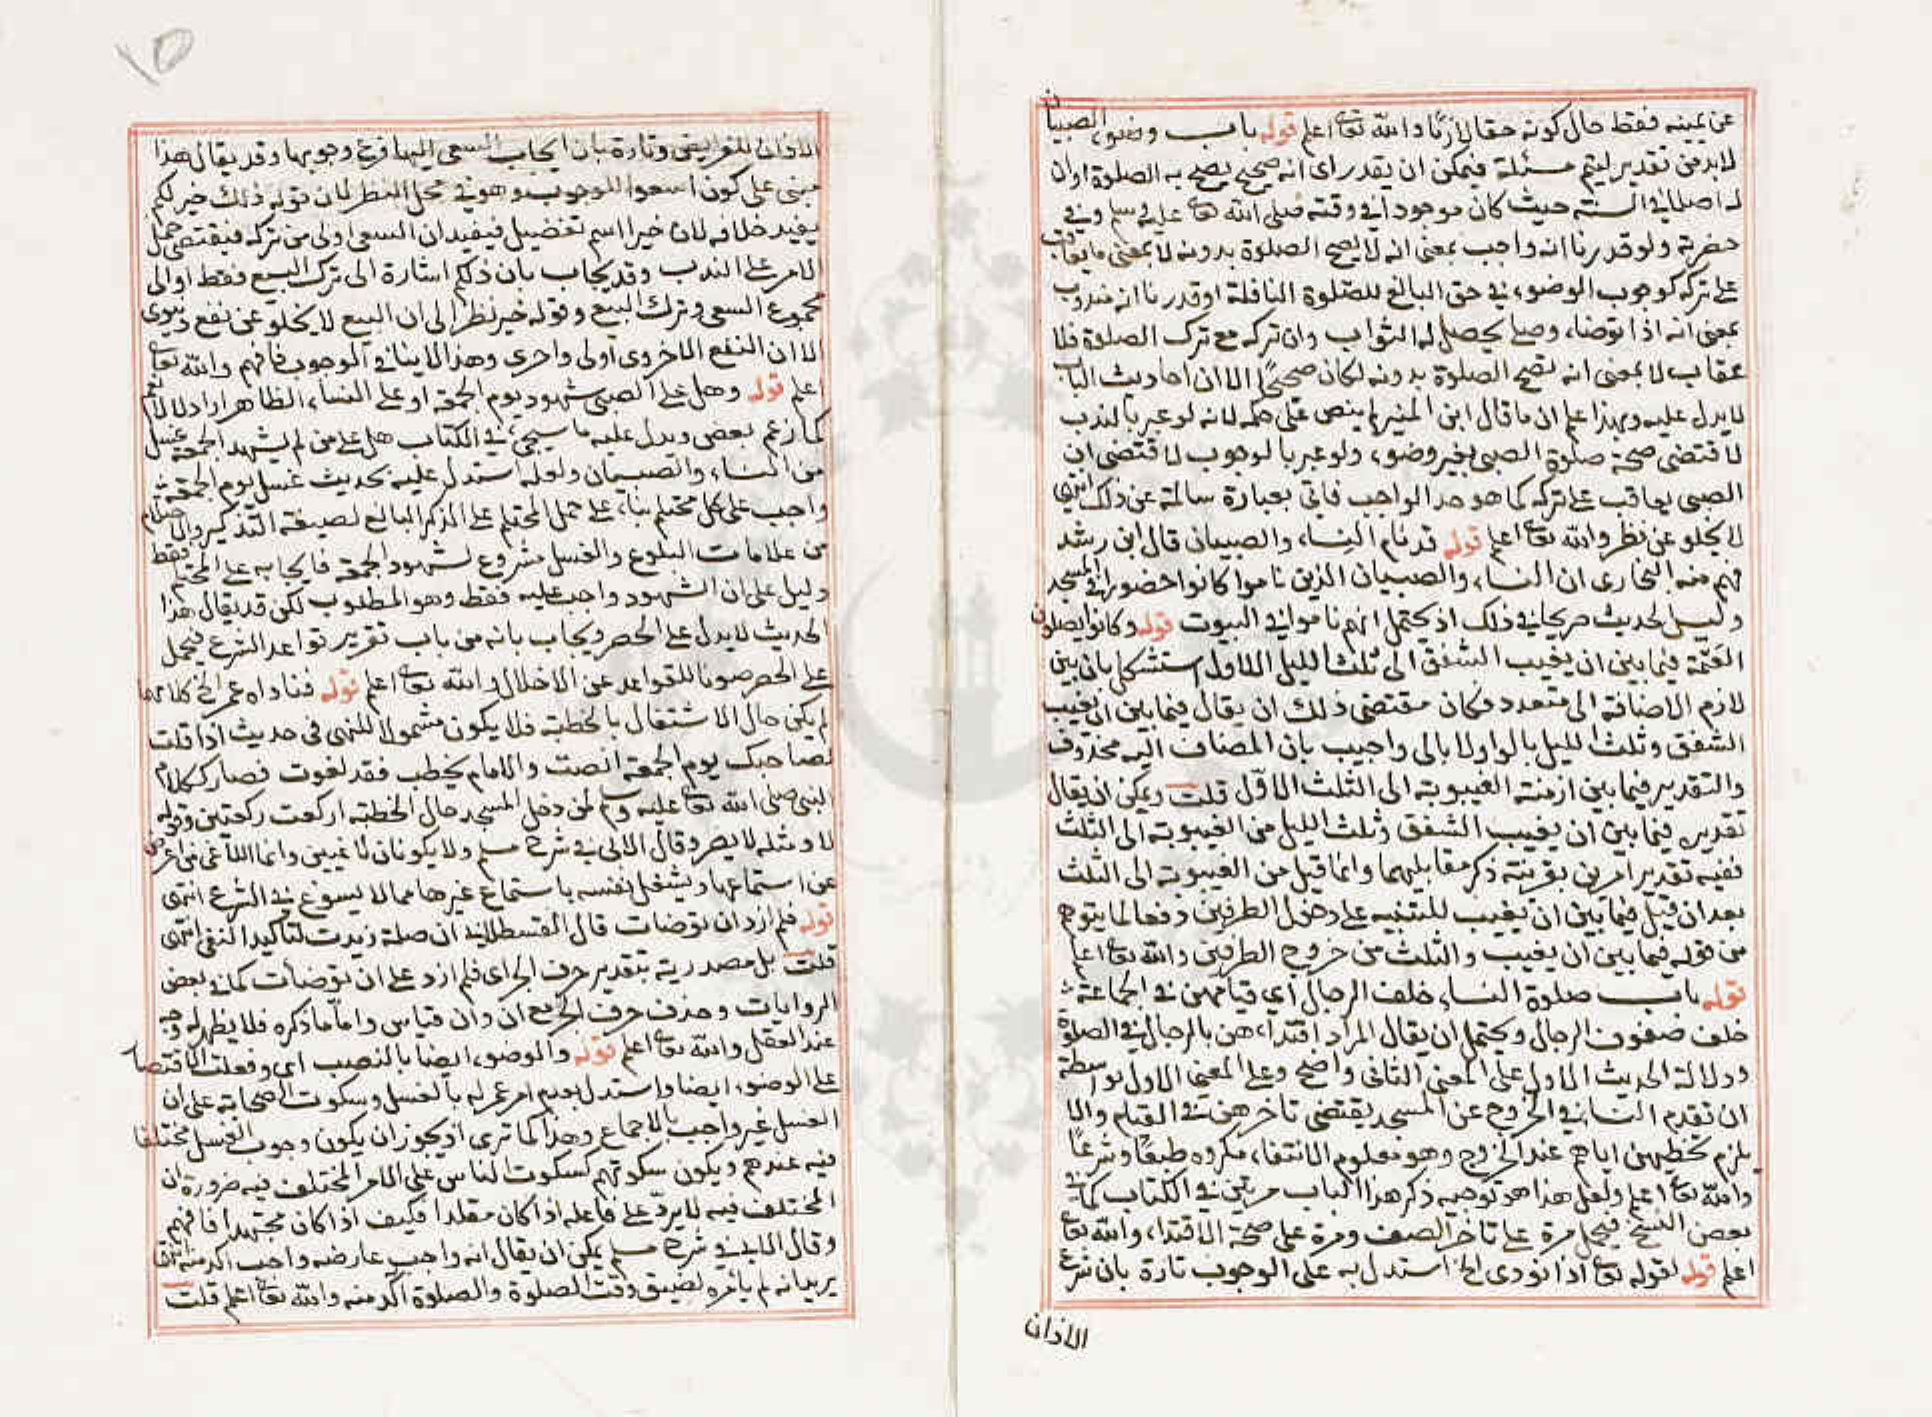 عن يمينه فقط حال كونه حقا لازما والله تعا اعلم قوله باب وضوء الصبيان
لابد من تقدير ليتم مسئلة فيمكن ان يقدر اى انه صحيح يصح به الصلوة او ان
له اصلا في السنة حيث كان موجودا في وقته صلى الله تعا عليه وسلم وفي
حضرته ولو قدرنا انه واجب بمعنى انه لا يصح الصلوة بدونه لا بمعنى ما يعاقب
على تركه كوجوب الوضوء في حق البالغ للصلوة النافلة او قدرنا انه مندوب
بمعنى انه اذا توضاء وصلى يحصل له الثواب وان تركه مع ترك الصلوة فلا
عقاب لا بمعنى انه تصح الصلوة بدونه لكان صحيحا الا ان احاديث الباب
لا يدل عليه وبهذا علم ان ما قال ابن المنير لم ينص على حكمه لانه لو عبر بالندب
لاقتضى صحة صلوة الصبي بغير وضوء ولو عبر بالوجوب لاقتضى ان
الصبى يعاقب على تركه كما هو حد الواجب فاتى بعبارة سالمة عن ذلك انتهى
لا يخلو عن نظر والله تعا اعلم قوله قد نام النساء والصبيان قال ابن رشد
فهم منه البخارى ان النساء والصبيان الذين ناموا كانوا حضورا في المسجد
وليس الحديث صريحا في ذلك اذ يحتمل انهم ناموا في البيوت قوله وكانوا يصلون
العتمة فيما بين ان يغيب الشفق الى ثلث الليل الاول استشكل بان بين
لازم الاضافة الى متعدد فكان مقتضى ذلك ان يقال فيما بين ان يغيب
الشفق وثلث الليل بالواو لا بالى واجيب بان المضاف اليه محذوف
والتقدير فيما بين ازمنة الغيبوبة الى الثلث الاول قلت ويمكن ان يقال
تقديره فيما بين ان يغيب الشفق وثلث الليل من الغيبوبة الى الثلث
ففيه تقدير امرين بقرينة ذكر مقابليهما وانما قيل من الغيبوبة الى الثلث
بعد ان قيل فيما بين ان يغيب للتنبيه على دخول الطرفين دفعا لما يتوهم
من قوله فيما بين ان يغيب والثلث من خروج الطرفين والله تعا اعلم
قوله باب صلوة النساء خلف الرجال اى قيامهن في الجماعة
خلف صفوف الرجال ويحتمل ان يقال المراد اقتداءهن بالرجال في الصلوة
ودلالة الحديث الاول على المعنى الثانى واضح وعلى المعنى الاول بواسطة
ان تقدم النساء في الخروج عن المسجد يقتضى تاخرهن في القيام والا
يلزم تخطيهن اياهم عند الخروج وهو معلوم الانتفاء مكروه طبعا وشرعا
والله تعا اعلم ولعل هذا هو توجيه ذكر هذا الباب مرتين في الكتاب كما في
بعض النسخ فيحمل مرة على تاخر الصف ومرة على صحة الاقتداء والله تعا
اعلم قوله لقوله تعا اذا نودى الخ استدل به على الوجوب تارة بان شرع
الاذان
١٥
الاذان للفرايض وتارة بان ايجاب السعى اليها فرع وجوبها وقد يقال هذا
مبنى على كون اسعوا للوجوب وهو في محل النظر لان قوله ذلك خير لكم
يفيد خلافه لان خيرا اسم تفضيل فيفيد ان السعى اولى من تركه فيقتضى حمل
الامر على الندب وقد يجاب بان ذلكم اشارة الى ترك البيع فقط او الى
مجموع السعى وترك البيع وقوله خير نظر الى ان البيع لا يخلو عن نفع دنيوى
الا ان النفع الاخروى اولى واحرى وهذا لا ينافي الوجوب فافهم والله تعا
اعلم قوله وهل على الصبى شهود يوم الجمعة او على النساء الظاهر
كما زعم بعض ويدل عليه ما سيجئ في الكتاب هل على من لم يشهد الجمعة غسل
من النساء والصبيان ولعله استدل عليه بحديث غسل يوم الجمعة
واجب على كل محتلم بناء على حمل المحتلم على المذكر البالغ لصيغة التذكير والاحتلام
من علامات البلوغ والغسل مشروع لشهود الجمعة فايجابه على المحتلم فقط
دليل على ان الشهود واجب عليه فقط وهو المطلوب لكن قد يقال هذا
الحديث لا يدل على الحصر ويجاب بانه من باب تقرير قواعد الشرع فيحمل
على الحصر صونا للقواعد عن الاخلال والله تعا اعلم قوله فناداه عمر الخ
لم يكن حال الاشتغال بالخطبة فلا يكون مشمولا للنهى فى حديث اذا قلت
لصاحبك يوم الجمعة انصت والامام يخطب فقد لغوت فصار ككلام
النبى صلى الله تعا عليه وسلم لمن دخل المسجد حال الخطبة اركعت ركعتين وقوله
لا ومثله لا يضر وقال الابى في شرح مسلم ولا يكونان لاغيين وانما اللاغى من اعرض
عن استماعها ويشغل نفسه باستماع غيرها مما لا يسوغ في الشرع انتهى
قوله فلم ازد ان توضات قال القسطلانى ان صلة زيدت لتاكيد النفى انتهى
قلت بل مصدرية بتقدير حرف الجر اى فلم ازد على ان توضأت كما في بعض
الروايات وحذف حرف الجر مع ان وان قياس واما ما ذكره فلا يظهر له وجه
عند العقل والله تعا اعلم قوله والوضوء ايضا بالنصب اى وفعلت الاقتصار
على الوضوء ايضا واستدل بعدم امر عمر له بالغسل وسكوت الصحابة على ان
الغسل غير واجب بالاجماع وهذا كما ترى اذ يجوز ان يكون وجوب الغسل مختلفا
فيه عندهم ويكون سكوتهم كسكوت الناس على الامر المختلف فيه ضرورة ان
المختلف فيه لا يرد على فاعله اذا كان مقلدا فكيف اذا كان مجتهدا فافهم
وقال الابى في شرح مسلم يمكن ان يقال انه واجب عارضه واجب اكد منه
يريد انه لم يأمره لضيق وقت الصلوة والصلوة اكد منه والله تعا اعلم قلت